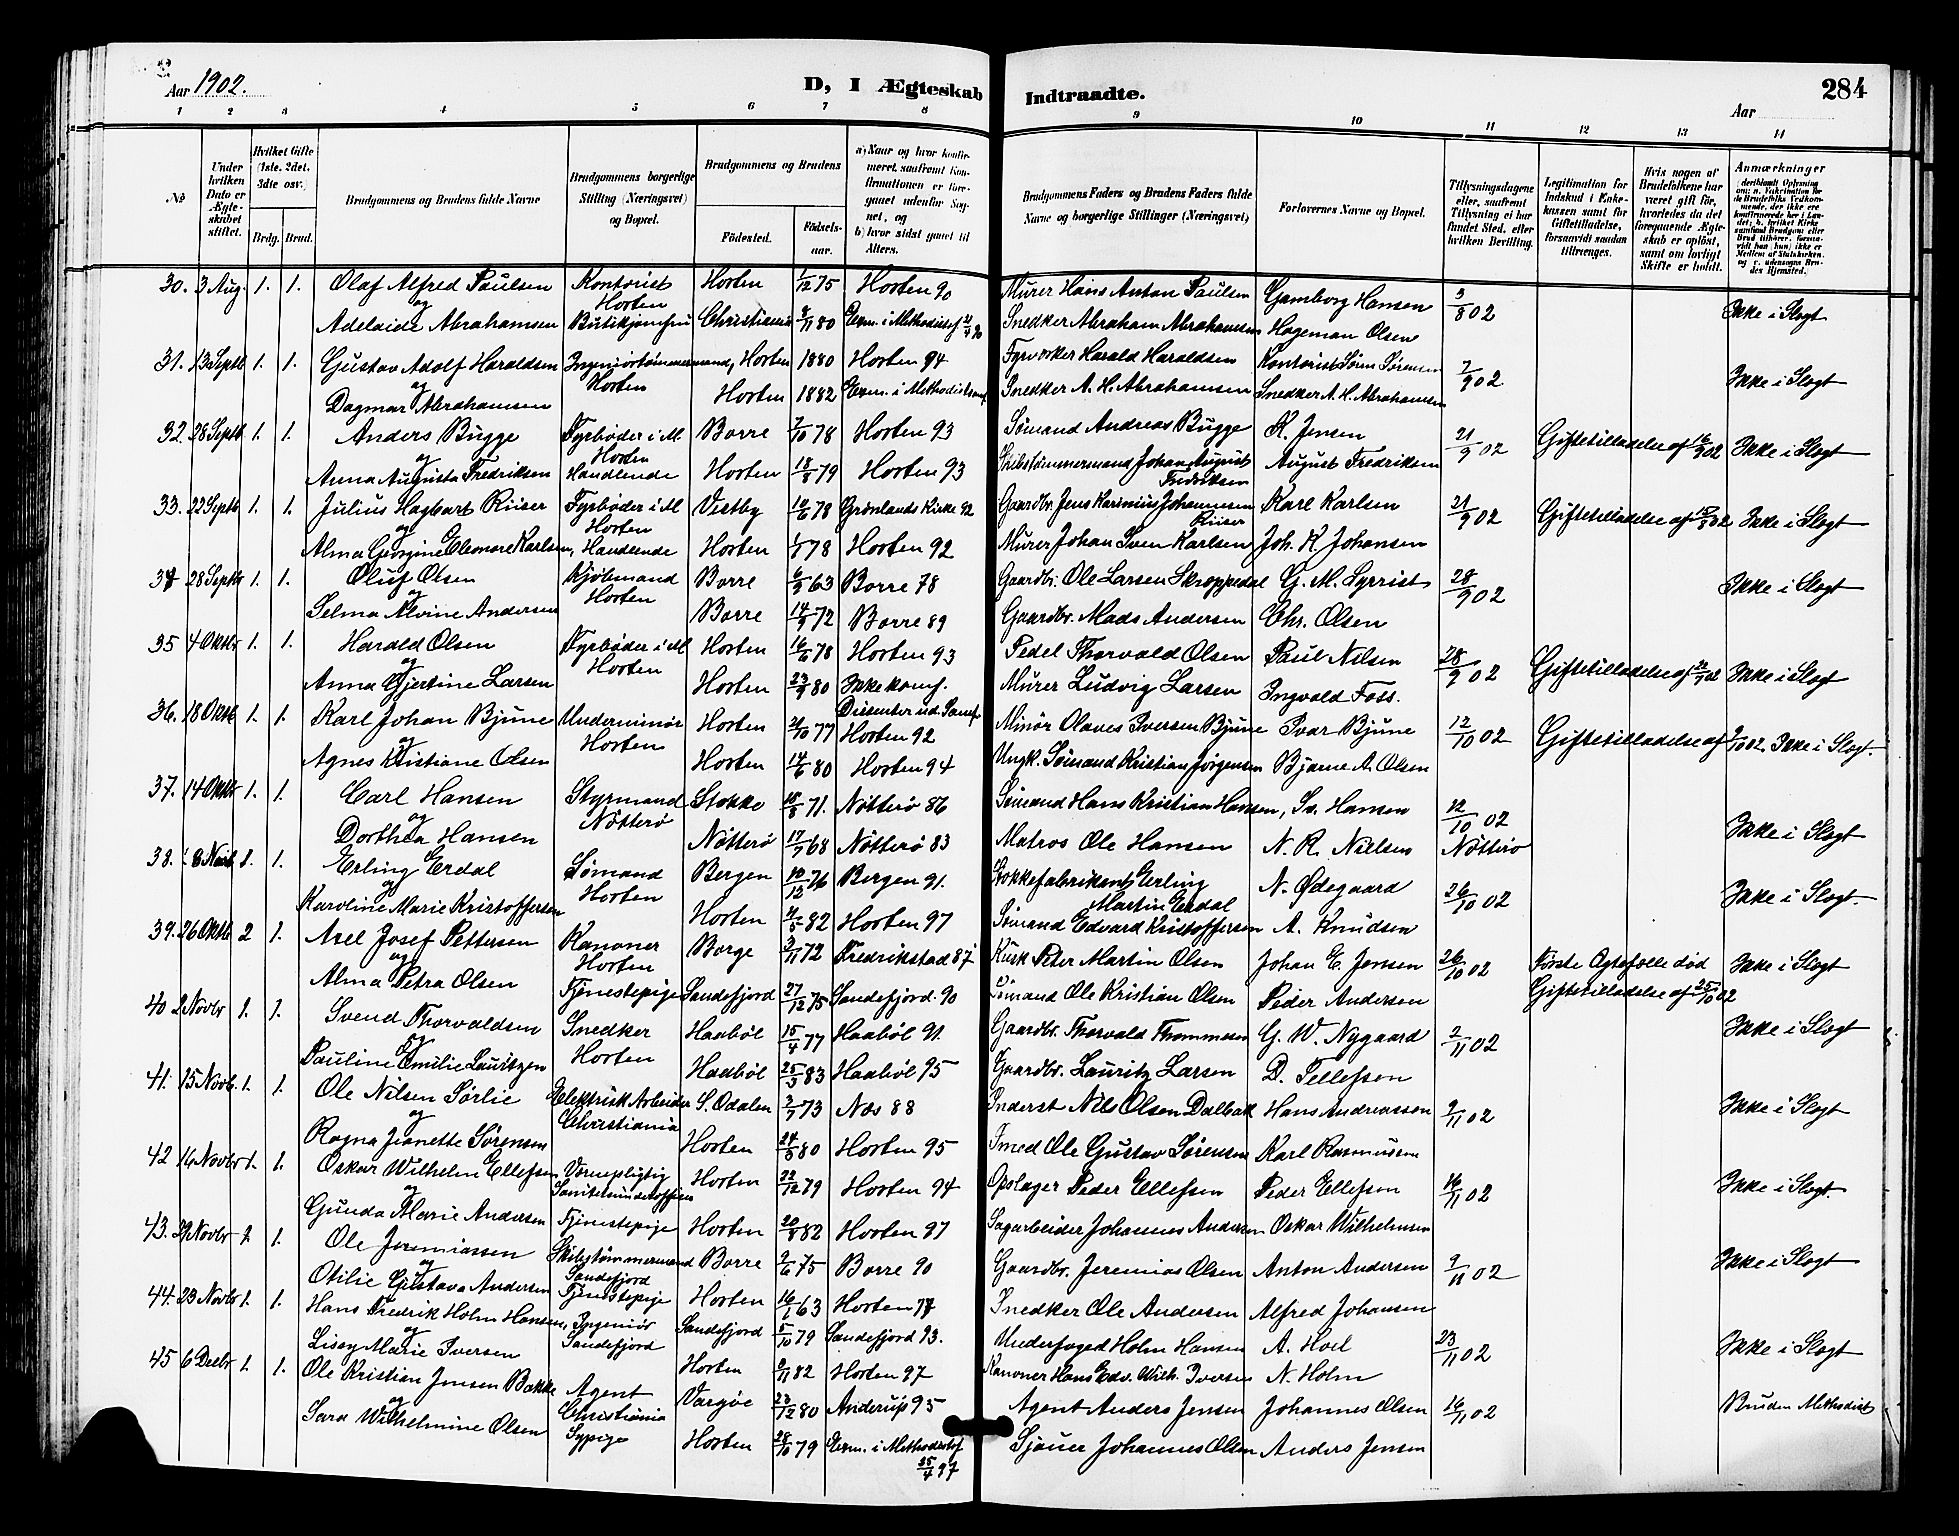 Aar 1902.
D, I Ægteskab Indtraadte.
284
Aar
1 2 3 4 5 6 7 8 9 10 11 12 13 14
No
Under hvilken Dato er Ægteskabet stiftet.
Hvilket Gifte (1ste, 2det, 3die osv.)
Brdg. Brud.
Brudgommens og Brudens fulde Navne
Brudgommens borgerlige Stilling (Næringsvei) og Bopæl.
Brudgommens og Brudens
Fødested.
Fødselsaar.
a) Naar og hvor konfirmeret, saafremt Konfirmationen er foregaaet udenfor Sognet, og
b) hvor sidst gaaet til Alters.
Brudgommens Faders og Brudens Faders fulde Navne og borgerlige Stillinger (Næringsvei)
Forlovernes Navne og Bopæl.
Tillysningsdagene eller, saafremt Tillysning ei har fundet Sted, efter hvilken Bevilling.
Legitimation for Indskud i Enkekassen samt for Giftetilladelse, forsaavidt saadan tiltrænges.
Hvis nogen af Brudefolkene har været gift før, hvorledes da det foregaaende Ægteskab er opløst, samt om lovligt Skifte er holdt.
Anmærkninger
30. 3 Aug. 1. 1. Olaf Alfred Paulsen Kontorist Horten Horten 1/12 75 Horten 90 Murer Hans Anton Paulsen Gamborg Hansen 3/8 02 Ikke i Slægt
og
Adelaide Abrahamsen Butikjomfru Christiania 8/11 80 Snedker Abraham Abrahamsen Hageman Olsen
31. 13 Septb 1. 1. Gustav Adolf Haraldsen Ingeniortømmermand, Horten Horten 1880 Horten 94 Fyrvorker Harald Haraldsen Kontorist Søren Sørensen 7/9 02 Ikke i Slægt
og
Dagmar Abrahamsen Horten 1882 Exm. i Methodistsamf. Snedker A. H. Abrahamsen Snedker A. H. Abrahamsen
32. 28 Septb 1. 1. Anders Bugge Fyrbøder i M. Horten Borre 7/10 78 Horten 93 Sømand Andreas Bugge K. Jensen 21/9 02 Giftetilladelse af 16/9 02 Ikke i Slægt
og
Anna Augusta Fredriksen Handlende Horten 18/8 79 Horten 93 Skibstømmermand Johan August Fredriksen August Fredriksen
33. 22 Septb 1. 1. Julius Hagbart Riiser Fyrbøder i M Horten Vestby 10/6 78 Grønlands Kirke 92 Gaardbr. Jens Karenius Johannesen Riiser Karl Karlsen 21/9 02 Giftetilladelse af Ikke i Slægt
og
Alma Georgine Eleonore Karlsen, Handlende Horten 78 Horten 92 Murer Johan Sven Karlsen Joh. K Johansen
34 28 Septb 1. 1. Oluf Olsen Kjøbmand Horten Borre 6/9 63 Borre 78 Gaardbr. Ole Larsen Skroppedal G. M. Syrrist 28/9 02 Ikke i Slægt
og
Selma Alvine Andersen Borre 14/9 72 Borre 89 Gaardbr. Mads Andersen Chr. Olsen
35 4 Oktbr 1. 1. Harald Olsen Fyrbøder i M Horten Horten 16/6 78 Horten 93 Pedel Thorvald Olsen Paul Nilsen 28/9 02 Giftetilladelse af Ikke i Slægt
og
Anna Gjertine Larsen Horten 23/9 80 Ikke konf. Dissenter ud. Samf. Murer Ludvig Larsen Ingvald Foss.
36. 18 Oktb 1. 1. Karl Johan Bjune Underminør Horten Horten 21/10 77 Horten 92 Minør Olaves Iversen Bjune Ivar Bjune 12/10 02 Giftetilladelse af 9/10 02. Ikke i Slægt.
og
Agnes Kristiane Olsen Horten 14/6 80 Horten 94 Ungk. Sømand Kristian Jørgensen Bjarne A. Olsen
37. 14 Oktbr 1. 1. Carl Hansen Styrmand Nötterö Stokke 18/8 71. Nötterö 86 Sømand Hans Kristian Hansen, Sv. Hansen 12/10 02 Nötterö Ikke i Slægt
og
Dorthea Hansen Nötterö 17/7 68 Nötterö 83 Matros Ole Hansen N. R. Nielsen
38. 8 Novb 1. 1. Erling Erdal Sømand Horten Bergen 10/12 76 Bergen 91. Stokkefabrikant Erling Martin Erdal N. Ødegaard 26/10 02 Ikke i Slægt.
og
Karoline Marie Kristoffersen Horten 4/5 82 Horten 97 Sømand Edvard Kristoffersen A. Knudsen
39. 26 Oktb 2 1. Axel Josef Pettersen Kanoner Horten Borge 3/11 72 Fredrikstad 87 Kusk Peter Martin Olsen Johan E. Jensen 26/10 02 Første Ægtefælle død Giftetilladelse af 25/10 02 Ikke i Slægt
og
Alma Petra Olsen Tjenestepige Sandefjord 27/12 75 Sandefjord. 90 Sømand Ole Kristian Olsen Peder Andersen
40 2 Novbr 1. 1. Svend Thorvaldsen Snedker Horten Haabøl 15/4 77 Haabøl 91. Gaardbr. Thorvald Thommesen G. W. Nygaard 2/11 02 Ikke i Slægt
og
Pauline Emilie Lauritzen Haabøl 25/3 83 Haabøl 95 Gaardbr. Lauritz Larsen D. Tellefsen
41. 15 Novb. 1. 1. Ole Nilsen Sørlie Elektrisk Arbeider Christiania S. Odalen 3/7 73 Næs 88 Inderst Nils Olsen Dalbak Hans Andreassen 9/11 02 Ikke i Slægt
og
Ragna Jeanette Sørensen Horten 24/5 80 Horten 95 Smed Ole Gustav Sørensen Karl Rasmussen
42 16 Novbr 1. 1. Oskar Wilhelm Ellefsen Vernepligtig Sanitetsunderofficer Horten 22/12 79 Horten 94 Opslager Peder Ellefsen Peder Ellefsen 16/11 02 Ikke i Slægt.
og
Gunda Marie Andersen Tjenestepige Horten 20/8 82 Horten 97 Sagarbeider Johannes Andersen Oskar Wilhelmsen
43. Novbr 1. 1. Ole Jeremiassen Skibstømmermand Sandefjord Borre 9/6 75 Borre 90 Gaardbr. Jeremias Olsen Anton Andersen 9/11 02 Ikke i Slægt
og
Otilie Gustava Andersen Tjenestepige Horten 16/1 63 Horten 77 Snedker Ole Andersen Alfred Johansen
44. 23 Novbr 1. 1. Hans Fredrik Holm Hansen, Ingeniør Sandefjord Sandefjord 5/10 79 Sandefjord 93. Underfoged Holm Hansen A. Hoel 23/11 02 Ikke i Slægt
og
Lissy Marie Iversen Horten 9/11 82 Horten 97 Kanoner Hans Edv. Wilh. Iversen N. Holm
45 6 Decbr 1. 1. Ole Kristian Jensen Bakke Agent Christiania Vargøe 23/12 80 Anderup 95 Agent Anders Jensen Johannes Olsen 16/11 02 Bruden Methodist
og
Sara Wilhelmine Olsen Sypige Horten 28/10 79 Exm. i Methodistsf 25/4 97 Sjauer Johannes Olsen Anders Jensen